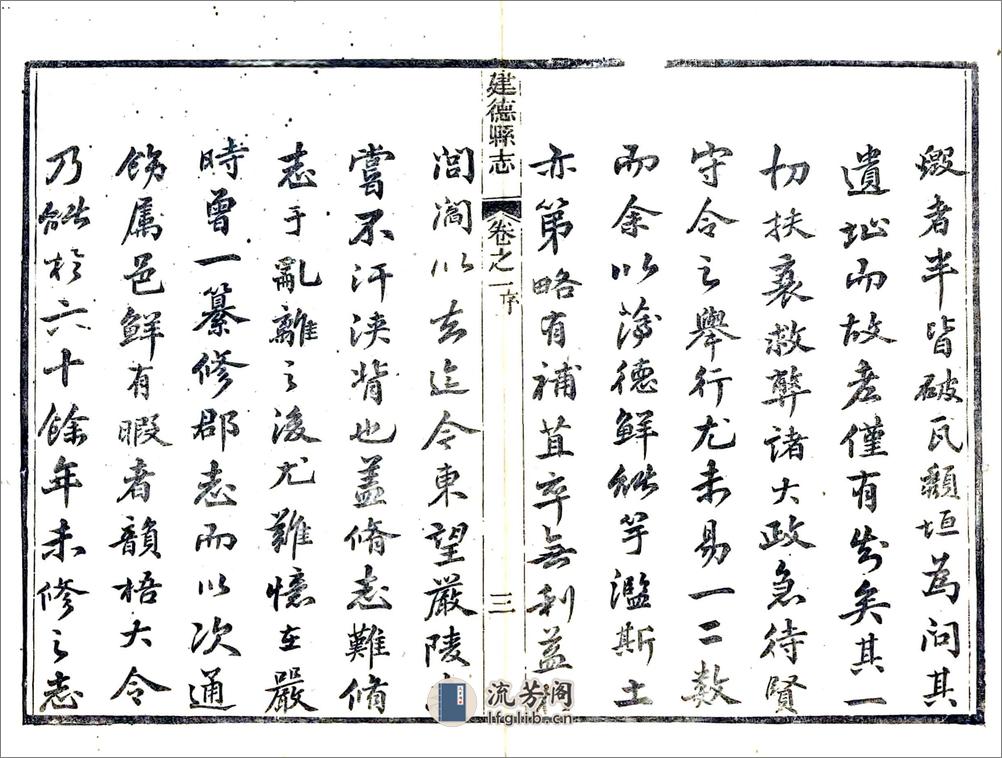 燬者半皆破瓦頹垣為問其
遺址而故老僅有知矣其一
切扶衰救弊諸大政急待賢
守令之舉行尤未易一二数
而余以薄德鮮能竽濫斯土
亦第略有補苴卒無利益
建德縣志
卷之一序
三
閭閻以去迄今東望嚴陵
嘗不汗浹背也蓋脩志難脩
志于亂離之後尤難憶在嚴
時曾一纂修郡志而以次通
飭属邑鮮有暇者韻梧大令
乃能於六十餘年未修之志
流芳阁
lfglib.cn